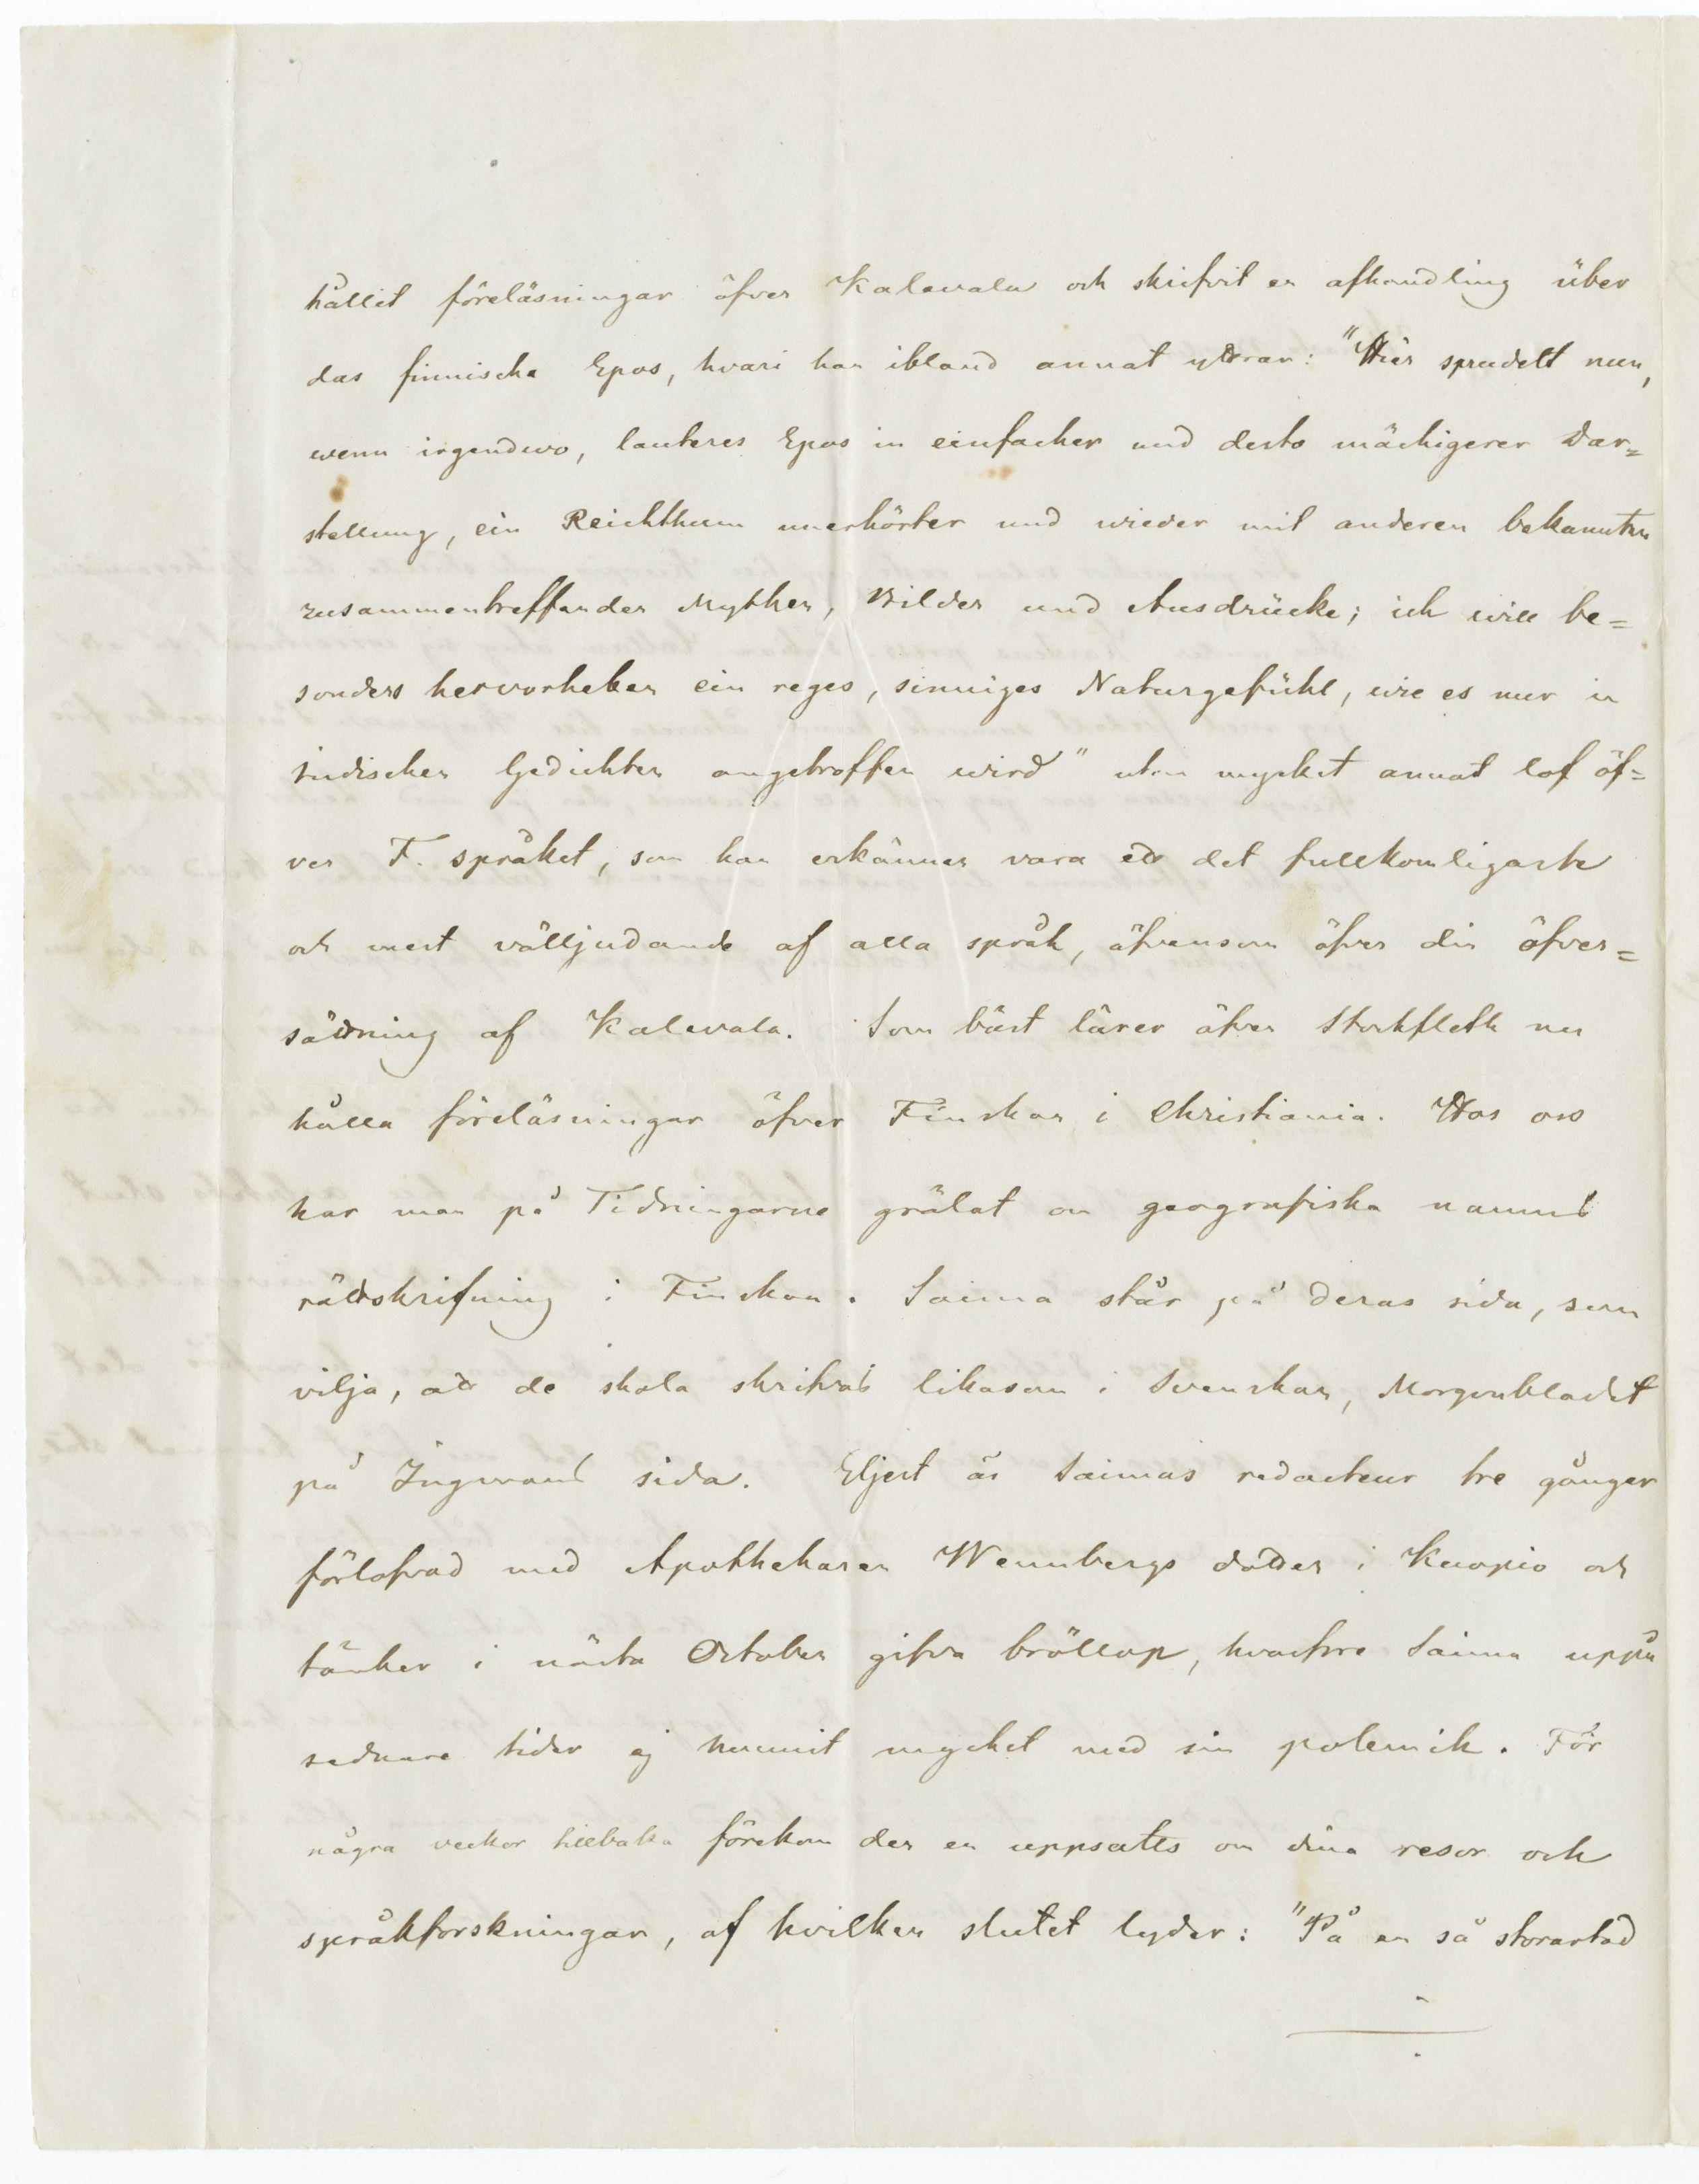 hållit föreläsningar öfver Kalevala och skrifvit en afhandling über
das finnische Epos, hvari han ibland annat yttrar: "Hier sprudelt nun,
wenn irgendwo, lauteres Epos in einfacher und desto mächigerer Dar=
stellung, ein Reichthum unerhörter und wieder mit anderen bekannten
zusammentreffender Mythen, Bilder und Ausdrücke; ich will be=
sonders hervorheben ein reges, sinniges Naturgefühl, wie es nur in
indischen Gedichten angetroffen wird" utom mycket annat lof öf=
ver F. språket, som han erkänner vara ett det fullkomligaste
och mest välljudande af alla språk, äfvensom öfver din öfver=
sättning af Kalevala. Som bäst lärer äfven Stockfleth nu
hålla föreläsningar öfver Finskan i Christiania. Hos oss
har man på Tidningarne grälat om geografiska namns
rättskrifning i Finskan. Saima står på deras sida, som
vilja, att de skola skrifvas likasom i Svenskan, Morgonbladet
på Ingmans sida. Eljest är Saimas redacteur tre gånger
förlofvad med Apothekaren Wennbergs dotter i Kuopio och
tänker i nästa October gifva bröllop, hvarföre Saima uppå
sednare tider ej hunnit mycket med sin polemik. För
några veckor tillbaka förekom der en uppsatts om dina resor och
språkforskningar, af hvilken slutet lyder: "På en så storartad